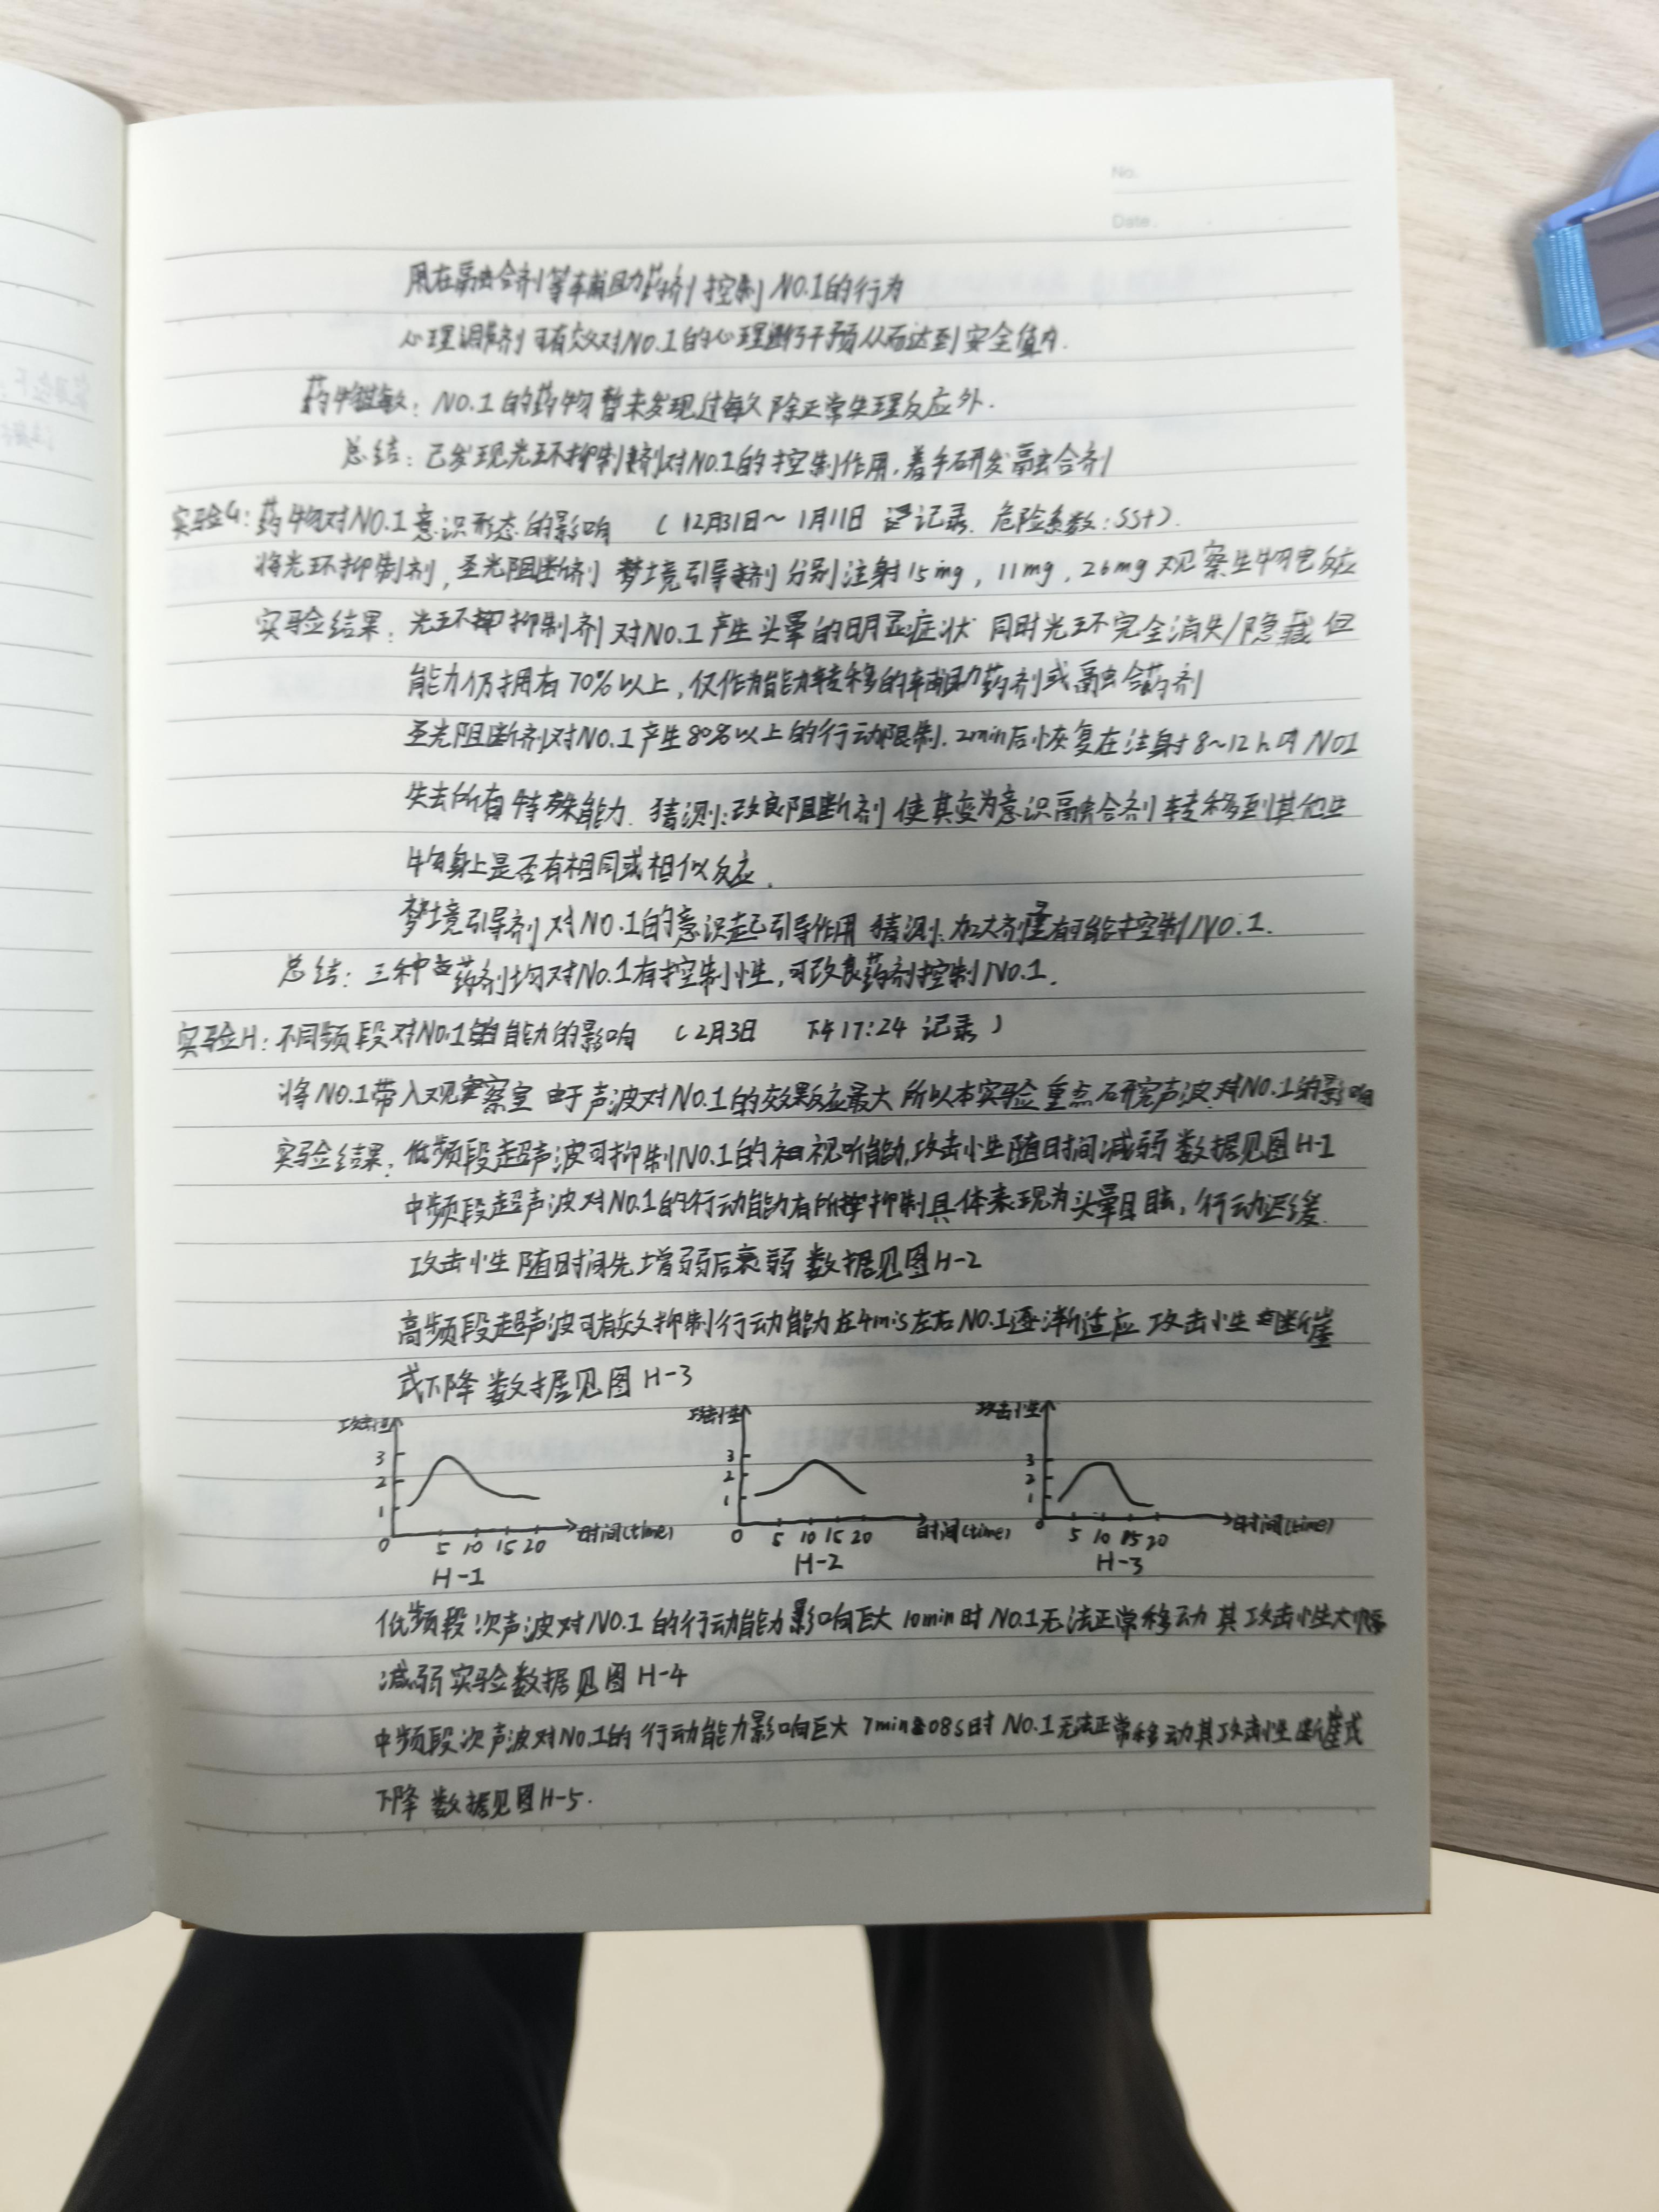 No.
Date.
用在融合剂等辅助药剂控制NO.1的行为
心理调解剂可有效对NO.1的心理进行干预从而达到安全值内.
药物过敏:NO.1的药物暂未发现过敏除正常生理反应外.
总结:已发现光环抑制剂对NO.1的控制作用,着手研发融合剂
实验G:药物对NO.1意识形态的影响 (12月31日~1月11日 记录.危险系数:SS+).
将光环抑制剂,圣光阻断剂 梦境引导剂分别注射15mg,11mg,26mg观察生物电反应
实验结果:光环抑制剂对NO.1产生头晕的明显症状 同时光环完全消失/隐藏但
能力仍拥有70%以上,仅作为能力转移的辅助药剂或融合药剂
圣光阻断剂对NO.1产生80%以上的行动限制.2min后恢复在注射8~12h内NO1
失去所有特殊能力.猜测:改良阻断剂使其变为意识融合剂转移到其他生
物身上是否有相同或相似反应.
梦境引导剂对NO.1的意识起引导作用 猜测:加大剂量有可能控制NO.1.
总结:三种药剂均对No.1有控制性,可改良药剂控制NO.1.
实验H:不同频段对NO.1的能力的影响 (2月3日 下午17:24 记录)
将NO.1带入观察室 由于声波对NO.1的效果反应最大 所以本实验重点研究声波对NO.1的影响
实验结果:低频段超声波可抑制NO.1的视听能力,攻击性随时间减弱 数据见图H-1
中频段超声波对NO.1的行动能力有所抑制具体表现为头晕目眩,行动迟缓
攻击性随时间先增弱后衰弱 数据见图H-2
高频段超声波可有效抑制行动能力在4mis左右NO.1逐渐适应 攻击性断崖
式下降 数据见图H-3
攻击性 3 2 1 0 5 10 15 20 时间(time)
H-1
攻击性 3 2 1 0 5 10 15 20 时间(time)
H-2
攻击性 3 2 1 0 5 10 15 20 时间(time)
H-3
低频段次声波对NO.1的行动能力影响巨大 10min时NO.1无法正常移动 其攻击性大幅
减弱实验数据见图H-4
中频段次声波对NO.1的行动能力影响巨大 7min08s时NO.1无法正常移动其攻击性断崖式
下降 数据见图H-5.